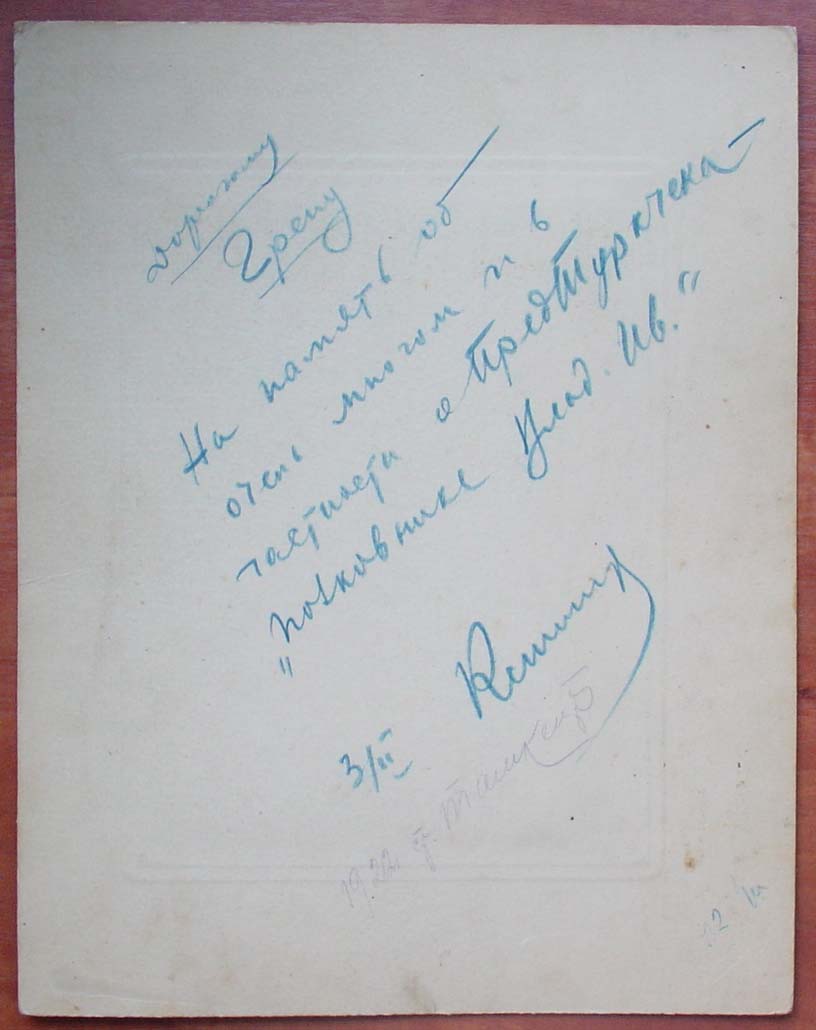 Дорогому
Грену
На память об
очень многом и в
частности о Предтуркчека
"полковнике Влад. Ив."
3/II
1922 г. Ташкент